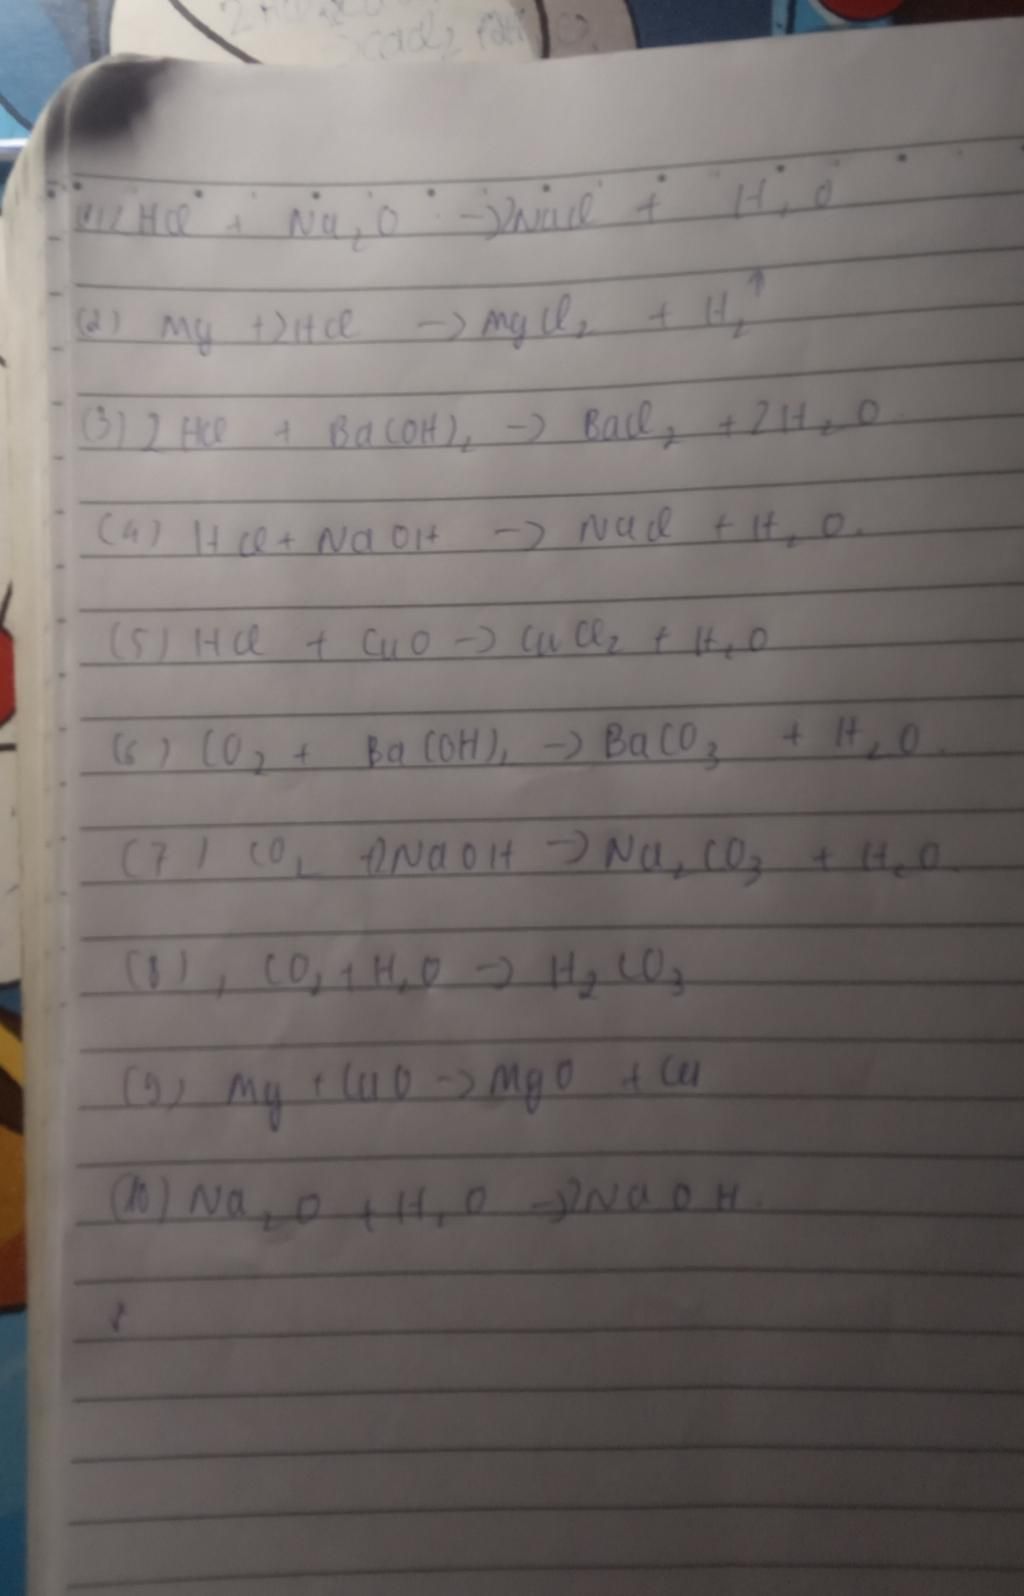 2HCl
CaCl₂ + H₂O.
(1) 2HCl + Na₂O → 2NaCl + H₂O
(2) Mg + 2HCl → MgCl₂ + H₂↑
(3) 2HCl + Ba(OH)₂ → BaCl₂ + 2H₂O
(4) HCl + NaOH → NaCl + H₂O.
(5) HCl + CuO → CuCl₂ + H₂O
(6) CO₂ + Ba(OH)₂ → BaCO₃ + H₂O.
(7) CO₂ + 2NaOH → Na₂CO₃ + H₂O.
(8), CO₂ + H₂O → H₂CO₃
(9) Mg + CuO → MgO + Cu
(10) Na₂O + H₂O → 2NaOH.